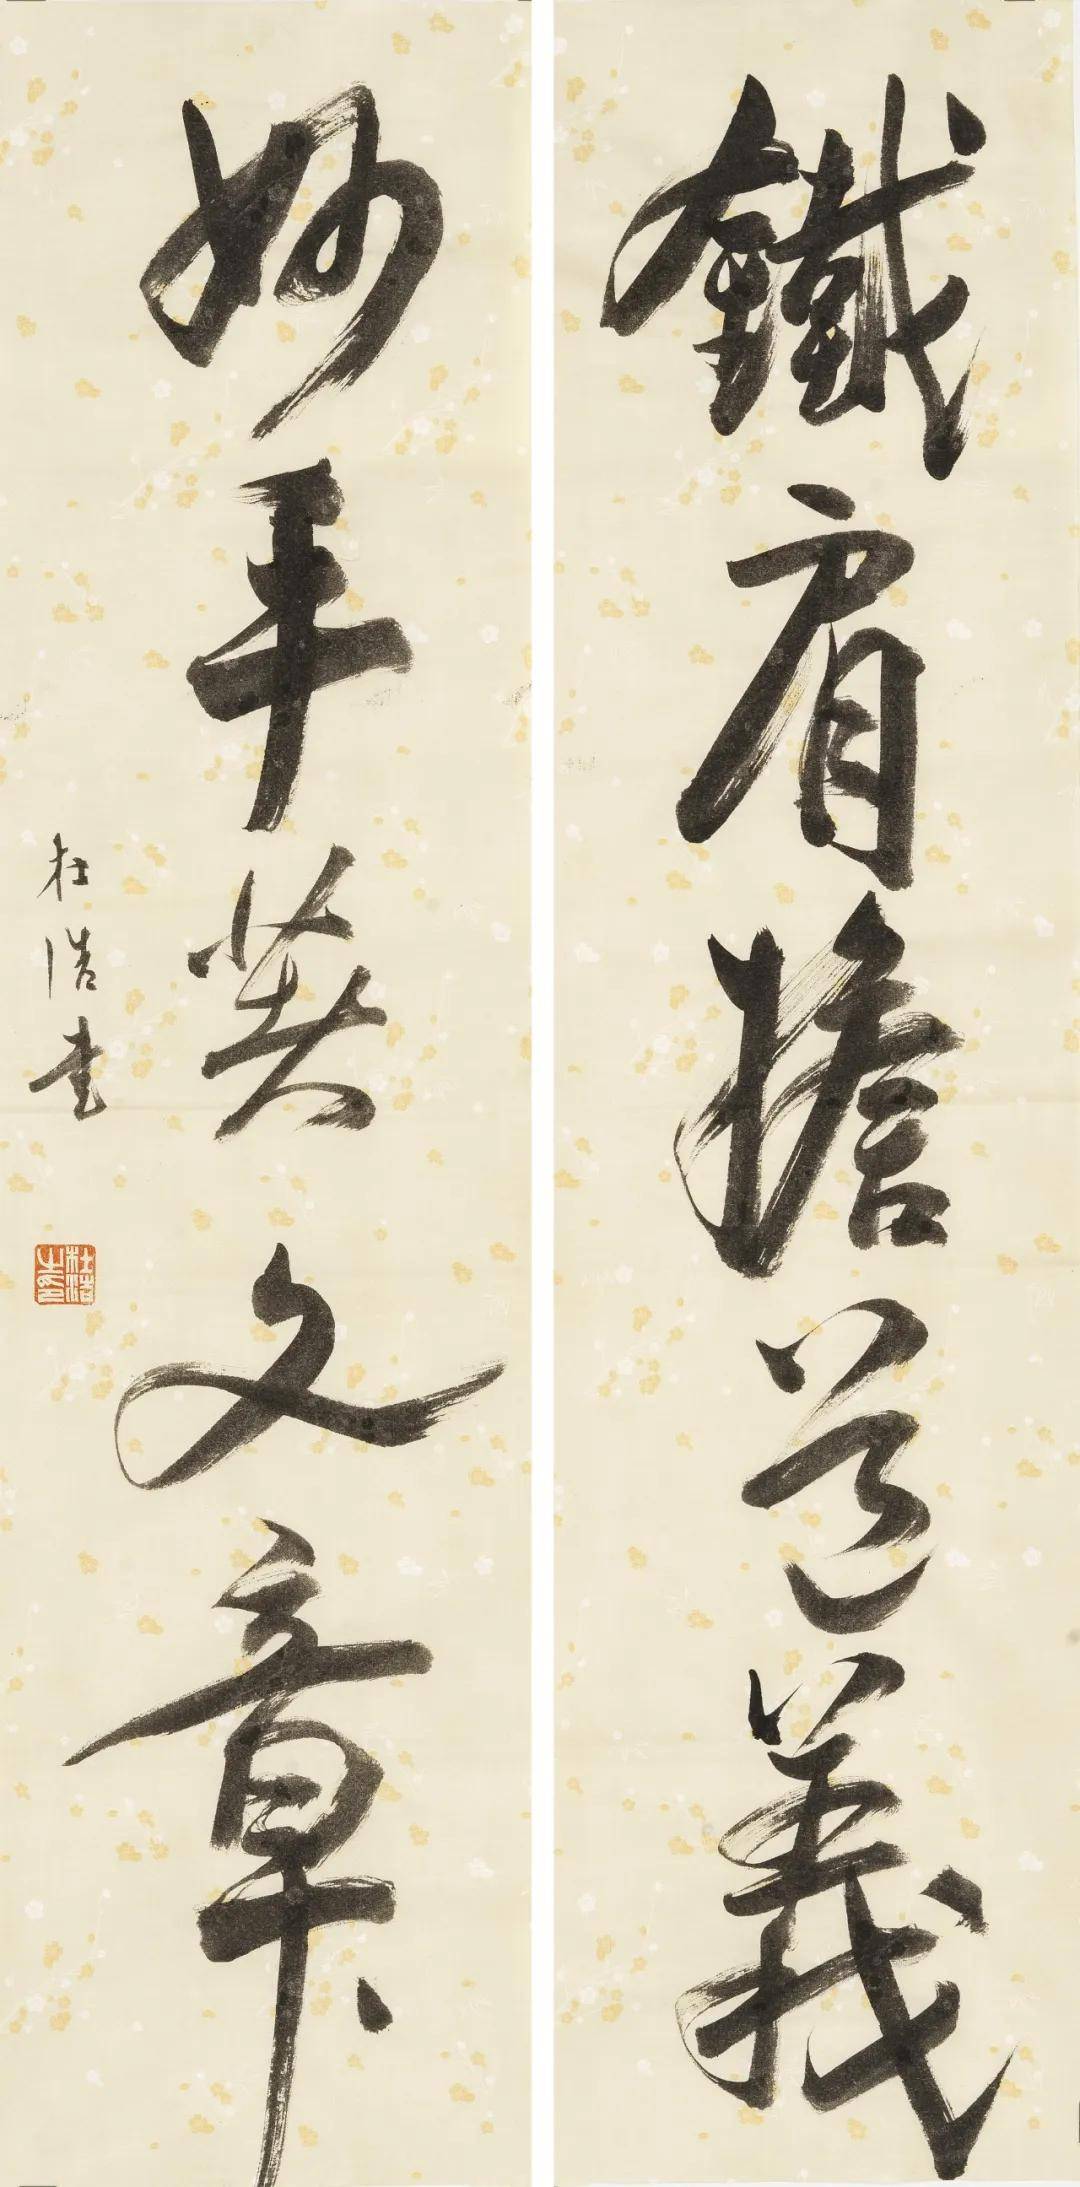 鐵肩擔道義
妙手文章
杜浩書
杜浩之印